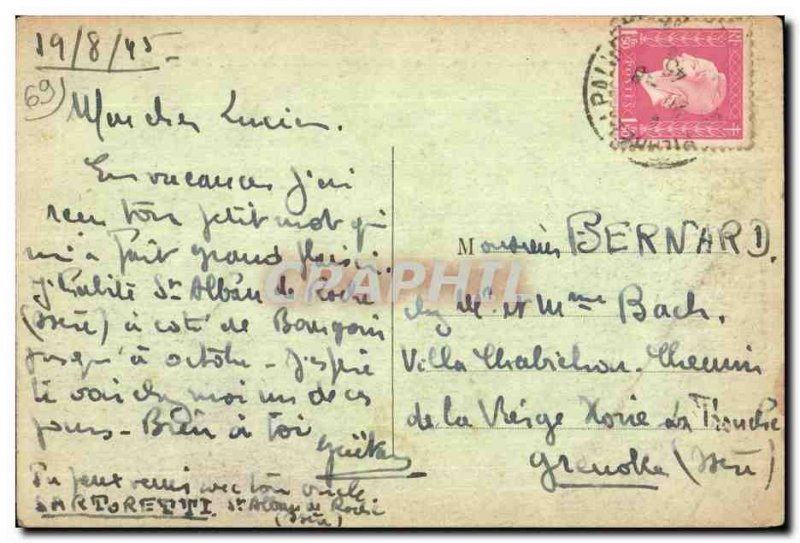 19/8/45
69)
Mon cher Lucien.
En vacances j'ai
reçu ton petit mot qui
m'a fait grand plaisir.
J'habite St Alban de Roche
(Isère) à coté de Bourgoin
jusqu'à octobre - J'espère
te voir chez moi un de ces
jours - Bien à toi
Tu peux venir avec ton oncle
SARTORETTI St Alban de Roche
(Isère)
Monsieur BERNARD.
chez Mr et Mme Bach.
Villa Chabichou. Chemin
de la Vierge Noire La Tronche
Grenoble (Isère)
RF
1F50
POSTES
1F50
CPARAMA
CRAPHIL